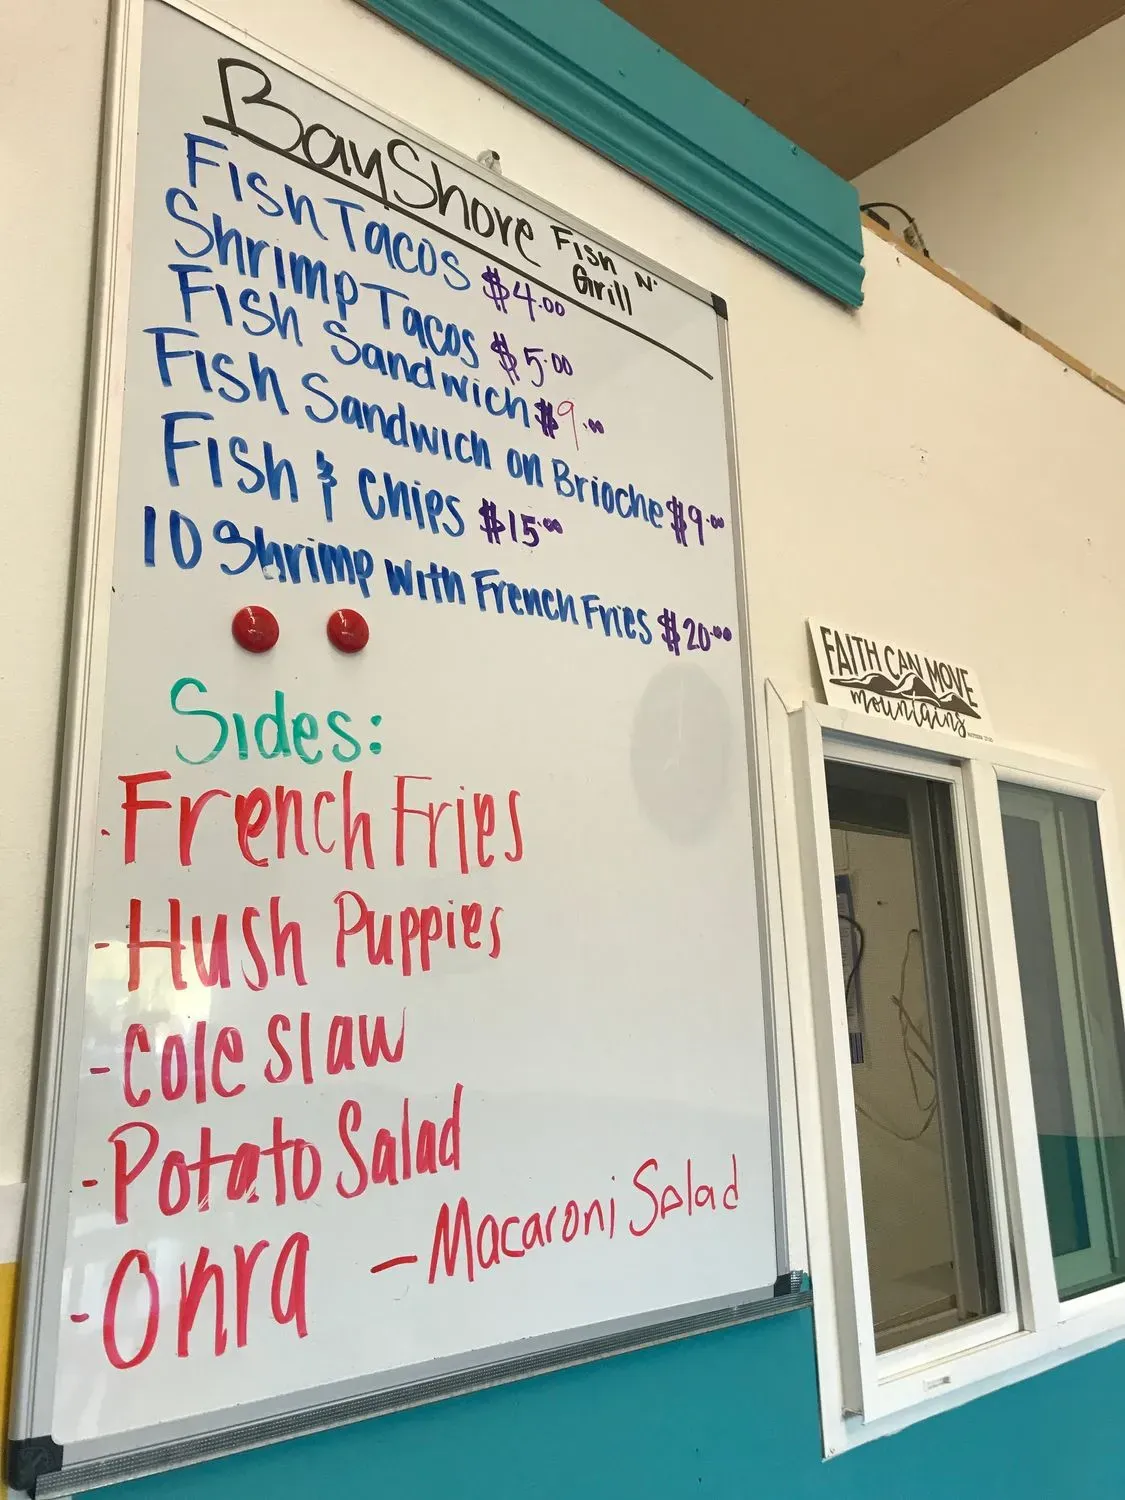 BayShore Fish N' Grill
Fish Tacos $4.00
Shrimp Tacos $5.00
Fish Sandwich $9.00
Fish Sandwich on Brioche $9.00
Fish & Chips $15.00
10 Shrimp with French Fries $20.00
Sides:
- French Fries
- Hush Puppies
- Cole slaw
- Potato Salad
- Onra
- Macaroni Salad
FAITH CAN MOVE
mountains